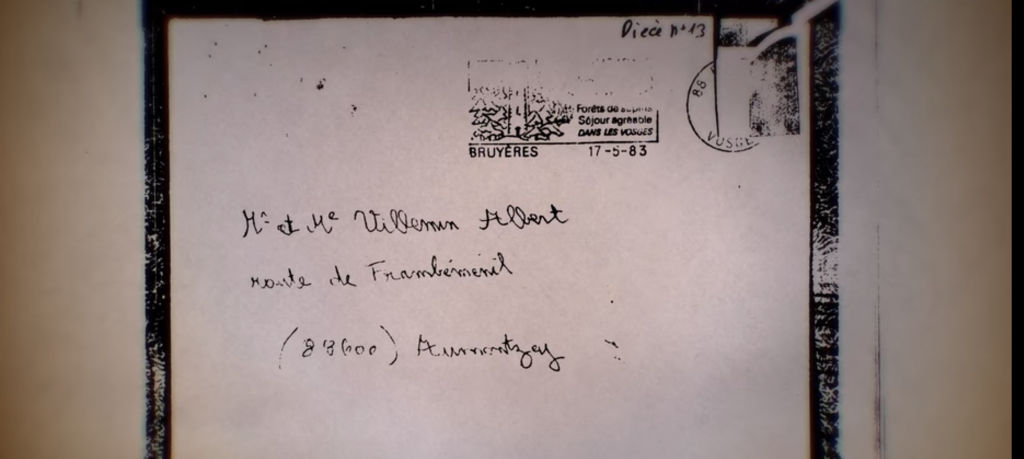 Pièce n° 13
88
Forêts de sapins
Séjour agréable
DANS LES VOSGES
BRUYÈRES 17-5-83
VOSGES
Mr et Me Villemin Albert
route de Frambéménil
(88600) Aumontzey